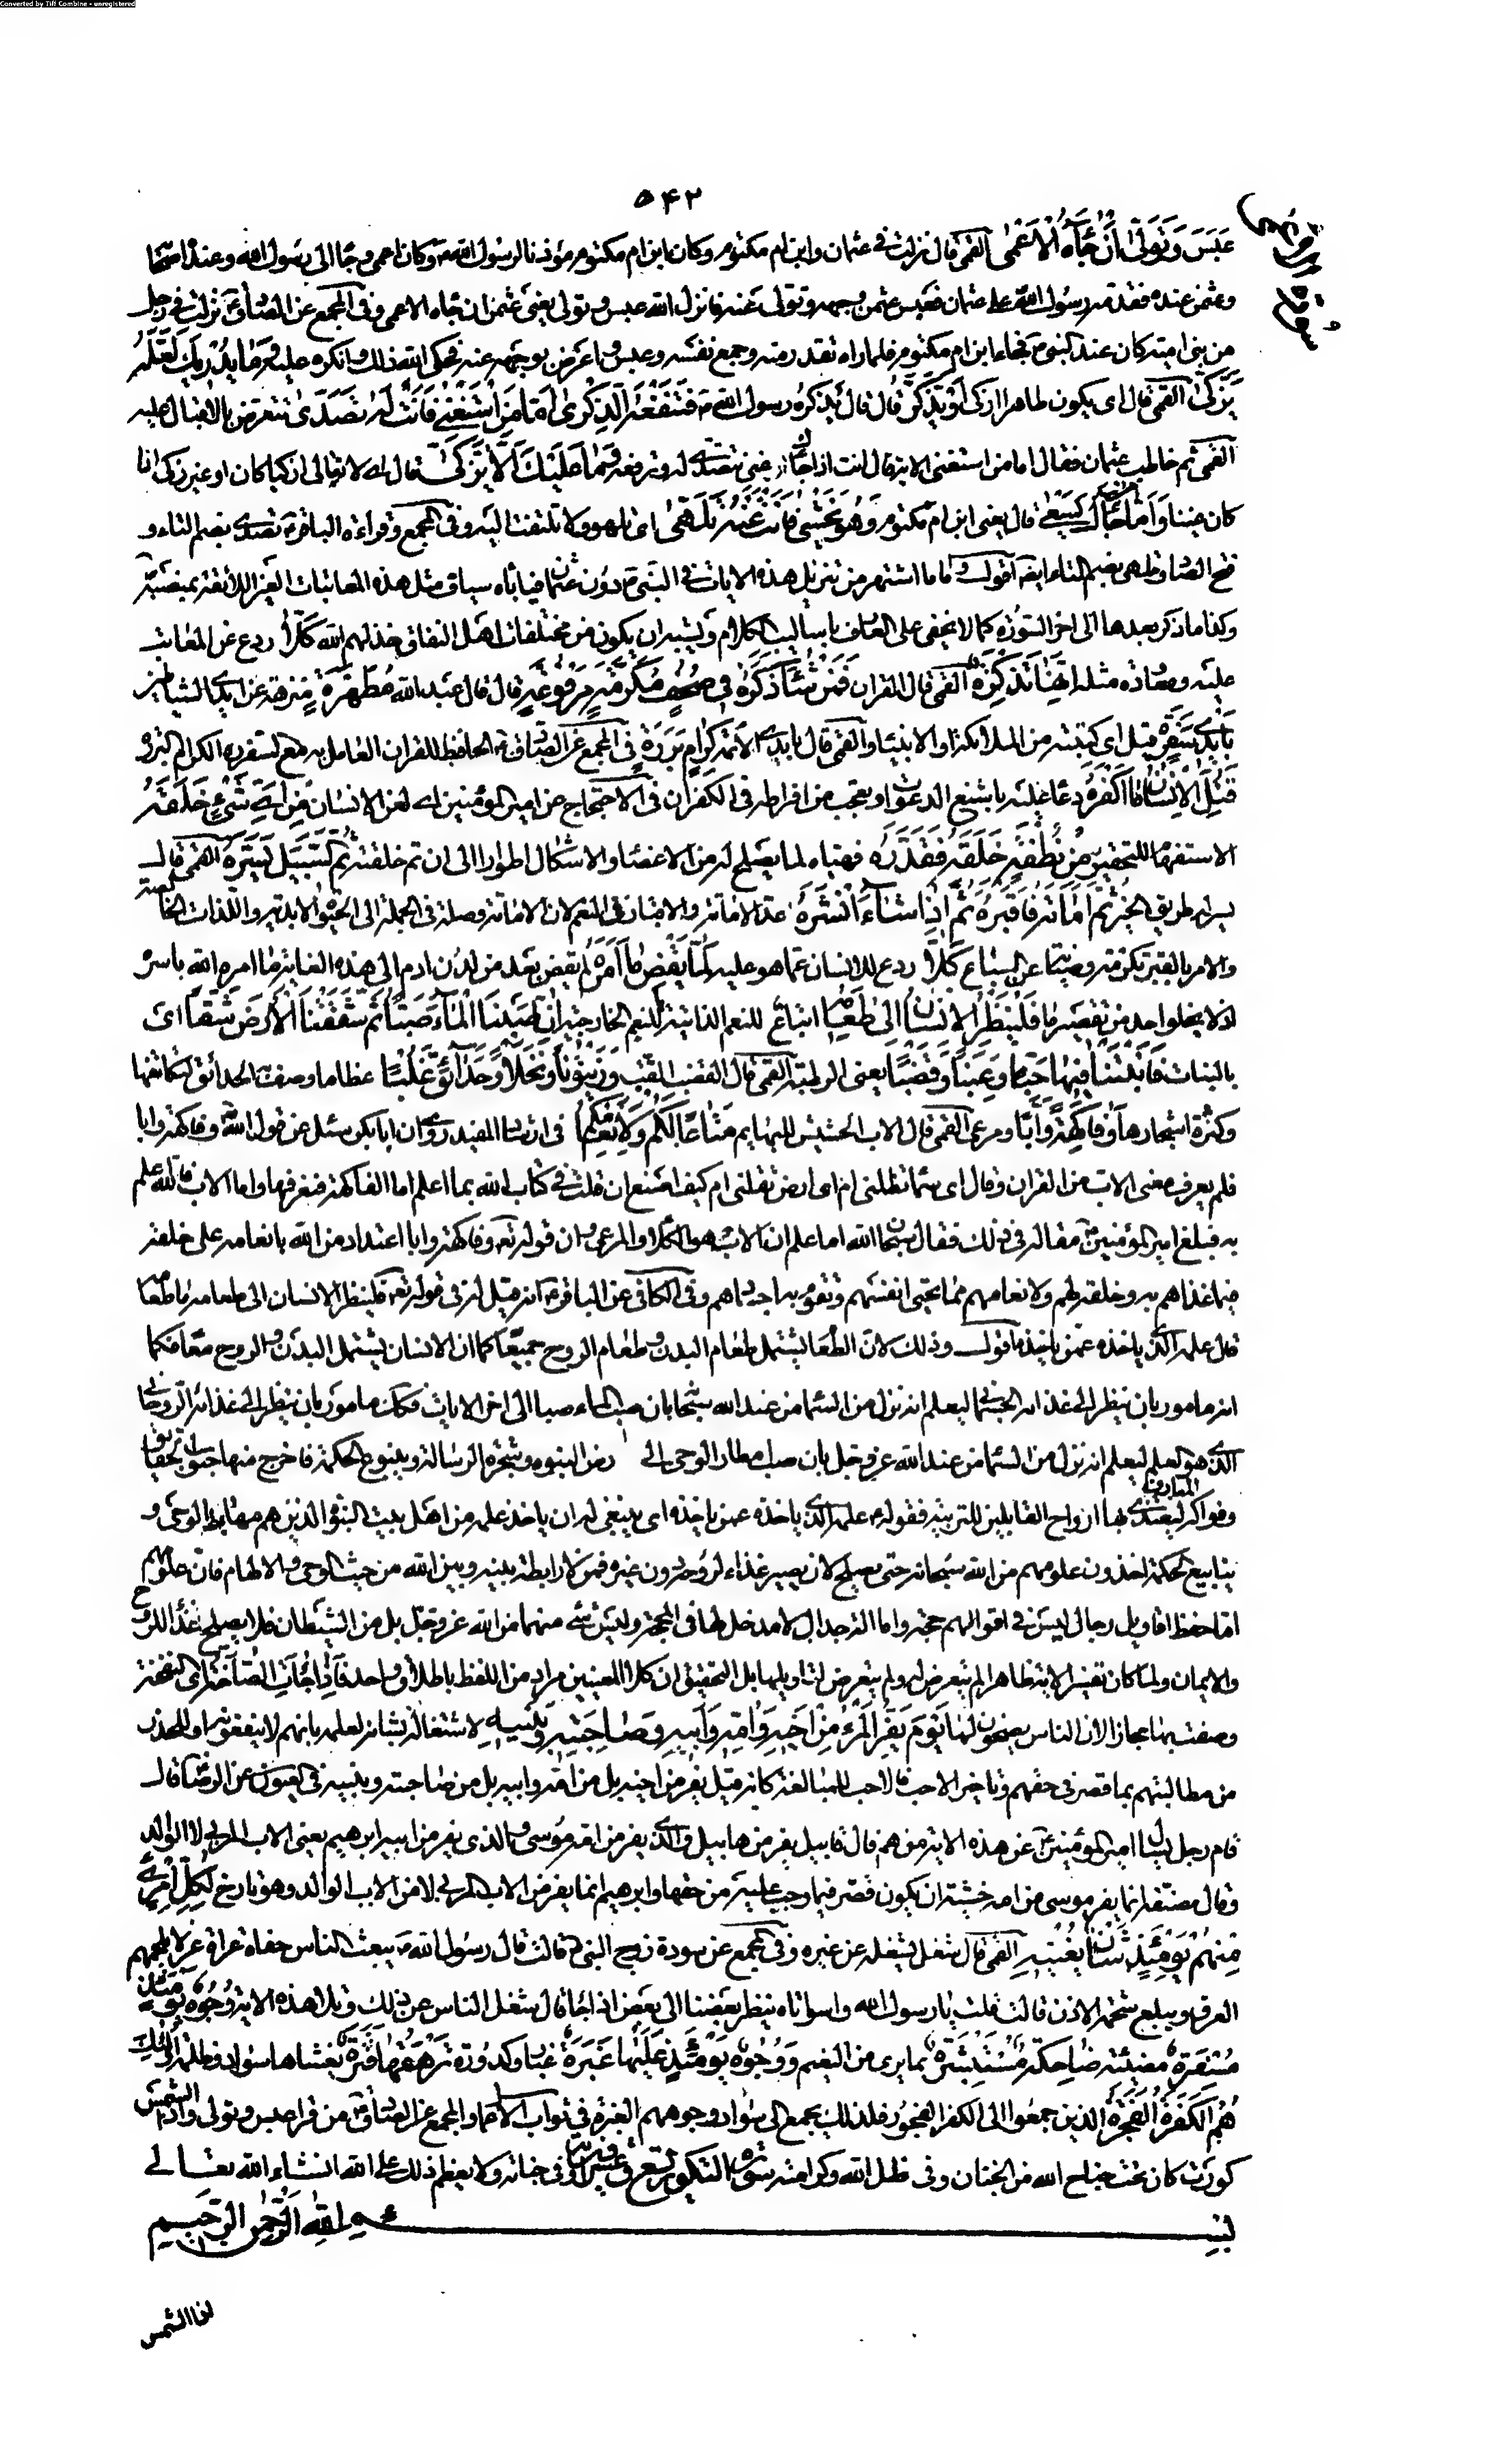 Converted by Tiff Combine - unregistered
۵۴۲
سورة
عَبَسَ وَتَوَلّىٰ اَنْ جٰٓاءَهُ الْاَعْمىٰ القمی قال نزلت فی عثمان وابن ام مکتوم وکان ابن ام مکتوم مؤذنا لرسول الله ص وکان اعمی وجآء الی رسول الله وعنده اصحابه
وعثمن عنده فقدمه رسول الله ص علی عثمان فعبس عثمن وجهه وتولی عنه فانزل الله عبس وتولی یعنی عثمن ان جاءه الاعمی وفی المجمع عن الصادق ع نزلت فی رجل
من بنی امیة کان عند النبی ص فجاء ابن ام مکتوم فلما راه تقذر منه وجمع نفسه وعبس واعرض بوجهه عنه فحکی الله ذلک وانکره علیه وَمٰا یُدْرِیكَ لَعَلَّهُ
یَزَّكّىٰ القمی قال ای یکون طاهرا ازکی اَوْ یَذَّكَّرُ قال قال یذکره رسول الله ص فَتَنْفَعَهُ الذِّكْرىٰ اَمّٰا مَنِ اسْتَغْنىٰ فَاَنْتَ لَهُ تَصَدّىٰ تتعرض بالاقبال علیه
القمی ثم خاطب عثمان فقال اما من استغنی الایة قال انت اذا جاءك غنی تتصدی له وترفعه وَمٰا عَلَیْكَ اَلّٰا یَزَّكّىٰ قال ای لا تبالی ازکیا کان او غیر زکی اذا
کان غنیا وَاَمّٰا مَنْ جٰاءَكَ یَسْعىٰ قال یعنی ابن ام مکتوم وَهُوَ یَخْشىٰ فَاَنْتَ عَنْهُ تَلَهّىٰ ای تلهو ولا تلتفت الیه وفی المجمع وقراءة الباقر ع تصدی بضم التاء و
فتح الصاد وتلهی بضم التاء ایضا اقول واما ما اشتهر من تنزیل هذه الایات فی النبی ص دون عثمان فیأباه سیاق مثل هذه المعاتبات الغیر اللائقة بمنصبه
وکذا ما ذکر بعدها الی اخر السورة کما لا یخفی علی العارف باسالیب الکلام ویشبه ان یکون من مختلقات اهل النفاق خذلهم الله كَلّٰا ردع عن المعاتب
علیه ومعاودة مثله اِنَّهٰا تَذْكِرَةٌ القمی قال القران فَمَنْ شٰاءَ ذَكَرَهُ فِی صُحُفٍ مُكَرَّمَةٍ مَرْفُوعَةٍ قال قال عند الله مُطَهَّرَةٍ منزهة عن ایدی الشیاطین
بِاَیْدِی سَفَرَةٍ قیل ای کتبة من الملائکة او الانبیاء والقمی قال بایدی الائمة كِرٰامٍ بَرَرَةٍ فی المجمع عن الصادق ع الحافظ للقران العامل به مع السفرة الکرام البررة
قُتِلَ الْاِنْسٰانُ مٰا اَكْفَرَهُ دعاء علیه باشنع الدعوات وتعجب من افراطه فی الکفران فی الاحتجاج عن امیر المؤمنین ع ای لعن الانسان مِنْ اَیِّ شَیْءٍ خَلَقَهُ
الاستفهام للتحقیر مِنْ نُطْفَةٍ خَلَقَهُ فَقَدَّرَهُ فهیاه لما یصلح له من الاعضاء والاشکال اطوارا الی ان تم خلقته ثُمَّ السَّبِیلَ یَسَّرَهُ القمی قال
یسر له طریق الخیر ثُمَّ اَمٰاتَهُ فَاَقْبَرَهُ ثُمَّ اِذٰا شٰاءَ اَنْشَرَهُ عد الاماتة والاقبار فی النعم لان الاماتة وصلة فی الجملة الی الحیوة الابدیة واللذات الخالصة
والامر بالقبر تکرمة وصیانة عن السباع كَلّٰا ردع للانسان عما هو علیه لَمّٰا یَقْضِ مٰا اَمَرَهُ لم یقض بعد من لدن ادم الی هذه الغایة ما امره الله باسره
اذ لا یخلو احد من تقصیر ما فَلْیَنْظُرِ الْاِنْسٰانُ اِلىٰ طَعٰامِهِ اتباع للنعم الذاتیة بالنعم الخارجیة اَنّٰا صَبَبْنَا الْمٰآءَ صَبًّا ثُمَّ شَقَقْنَا الْاَرْضَ شَقًّا ای
بالنبات فَاَنْبَتْنٰا فِیهٰا حَبًّا وَعِنَبًا وَقَضْبًا یعنی الرطبة القمی قال القضب القت وَزَیْتُونًا وَنَخْلًا وَحَدٰآئِقَ غُلْبًا عظاما وصف به الحدائق لتکاثفها
وکثرة اشجارها وَفٰاكِهَةً وَاَبًّا ومرعی القمی قال الاب الحشیش للبهایم مَتٰاعًا لَكُمْ وَلِاَنْعٰامِكُمْ فی ارشاد المفید روی ان ابا بکر سئل عن قول الله تعالی وفاکهة وابا
فلم یعرف معنی الاب من القران وقال ای سماء تظلنی ام ای ارض تقلنی ام کیف اصنع ان قلت فی کتاب الله بما لا اعلم اما الفاکهة فنعرفها واما الاب فالله اعلم
به فبلغ امیر المؤمنین ع مقاله فی ذلک فقال سبحان الله اما علم ان الاب هو الکلاء والمرعی وان قوله تع وفاکهة وابا اعتداد من الله بانعامه علی خلقه
فیما غذاهم به وخلقه لهم ولانعامهم مما تحیی به انفسهم وتقوم به اجسادهم وفی الکافی عن الباقر ع انه قیل له فی قوله تع فلینظر الانسان الی طعامه ما طعامه
قال علمه الذی یاخذه عمن یاخذه اقول وذلک لان الطعام یشمل طعام البدن وطعام الروح جمیعا کما ان الانسان یشمل البدن والروح معا فکما
انه مامور بان ینظر الی غذائه الجسمانی لیعلم انه نزل من السماء من عند الله سبحانه بان صب الماء صبا الی اخر الایات فکذلک مامور بان ینظر الی غذائه الروحانی
الذی هو العلم لیعلم انه نزل من السماء من عند الله عز وجل بان صب امطار الوحی الی ارض النبوة وشجرة الرسالة وینبوع الحکمة فاخرج منها حبوب الحقایق
وفواکه المعارف لیغتذی بها ارواح القابلین للتربیة فقوله علمه الذی یاخذه عمن یاخذه ای ینبغی له ان یاخذ علمه من اهل بیت النبوة الذین هم مهابط الوحی و
ینابیع الحکمة اخذون علومهم من الله سبحانه حتی یصلح لان یصیر غذاء لروحه دون غیره ممن لا رابطة بینه وبین الله من حیث الوحی والالهام فان علومهم
اما حفظ اقاویل رجال لیس فی اقوالهم حجة واما الة جدال لا مدخل لها فی المحجة ولیس شیء منهما من الله عز وجل بل من الشیطان فلا یصلح غذاء للروح
والایمان ولما کان تفسیر الایة ظاهرا لم یتعرض له وانما تعرض لتاویلها بل التحقیق ان کلا المعنیین مراد من اللفظ باطلاق واحد فَاِذٰا جٰآءَتِ الصّٰآخَّةُ ای النفخة
وصفت بها مجازا لان الناس یصخون لها یَوْمَ یَفِرُّ الْمَرْءُ مِنْ اَخِیهِ وَاُمِّهِ وَاَبِیهِ وَصٰاحِبَتِهِ وَبَنِیهِ لاشتغاله بشانه لعلمه بانهم لا ینفعونه او للحذر
من مطالبتهم بما قصر فی حقهم وتاخیر الاحب فالاحب للمبالغة کانه قیل یفر من اخیه بل من امه وابیه بل من صاحبته وبنیه فی العیون عن الرضا ع قال
قام رجل یسال امیر المؤمنین ع عن هذه الایة من هم قال قابیل یفر من هابیل والذی یفر من امه موسی والذی یفر من ابیه ابرهیم یعنی الاب المربی لا الوالد
وقال مصنفه انما یفر موسی من امه خشیة ان یکون قصر فیما وجب علیه من حقها وابرهیم انما یفر من الاب المربی لا من الاب الوالد وهو تارخ لِكُلِّ امْرِئٍ
مِنْهُمْ یَوْمَئِذٍ شَاْنٌ یُغْنِیهِ القمی قال شغل یشغله عن غیره وفی المجمع عن سودة زوج النبی ص قالت قال رسول الله ص یبعث الناس حفاة عراة غرلا یلجمهم
العرق ویبلغ شحمة الاذن قالت قلت یا رسول الله واسواتاه ینظر بعضنا الی بعض اذا جاؤا قال شغل الناس عن ذلک وتلا هذه الایة وُجُوهٌ یَوْمَئِذٍ
مُسْفِرَةٌ مضیئة ضٰاحِكَةٌ مُسْتَبْشِرَةٌ بما یری من النعیم وَوُجُوهٌ یَوْمَئِذٍ عَلَیْهٰا غَبَرَةٌ غبار وکدورة تَرْهَقُهٰا قَتَرَةٌ یغشاها سواد وظلمة اُولٰٓئِكَ
هُمُ الْكَفَرَةُ الْفَجَرَةُ الذین جمعوا الی الکفر الفجور فلذلک یجمع الی سواد وجوههم الغبرة فی ثواب الاعمال والمجمع عن الصادق ع من قرا عبس وتولی واذا الشمس
کورت کان تحت جناح الله من الجنان وفی ظل الله وکرامته سورة التکویر تسع وعشرون ایة وفی جنانه ولا یعظم ذلک علی الله انشاء الله تعالی
بسم الله الرحمن الرحیم
اذا الشمس